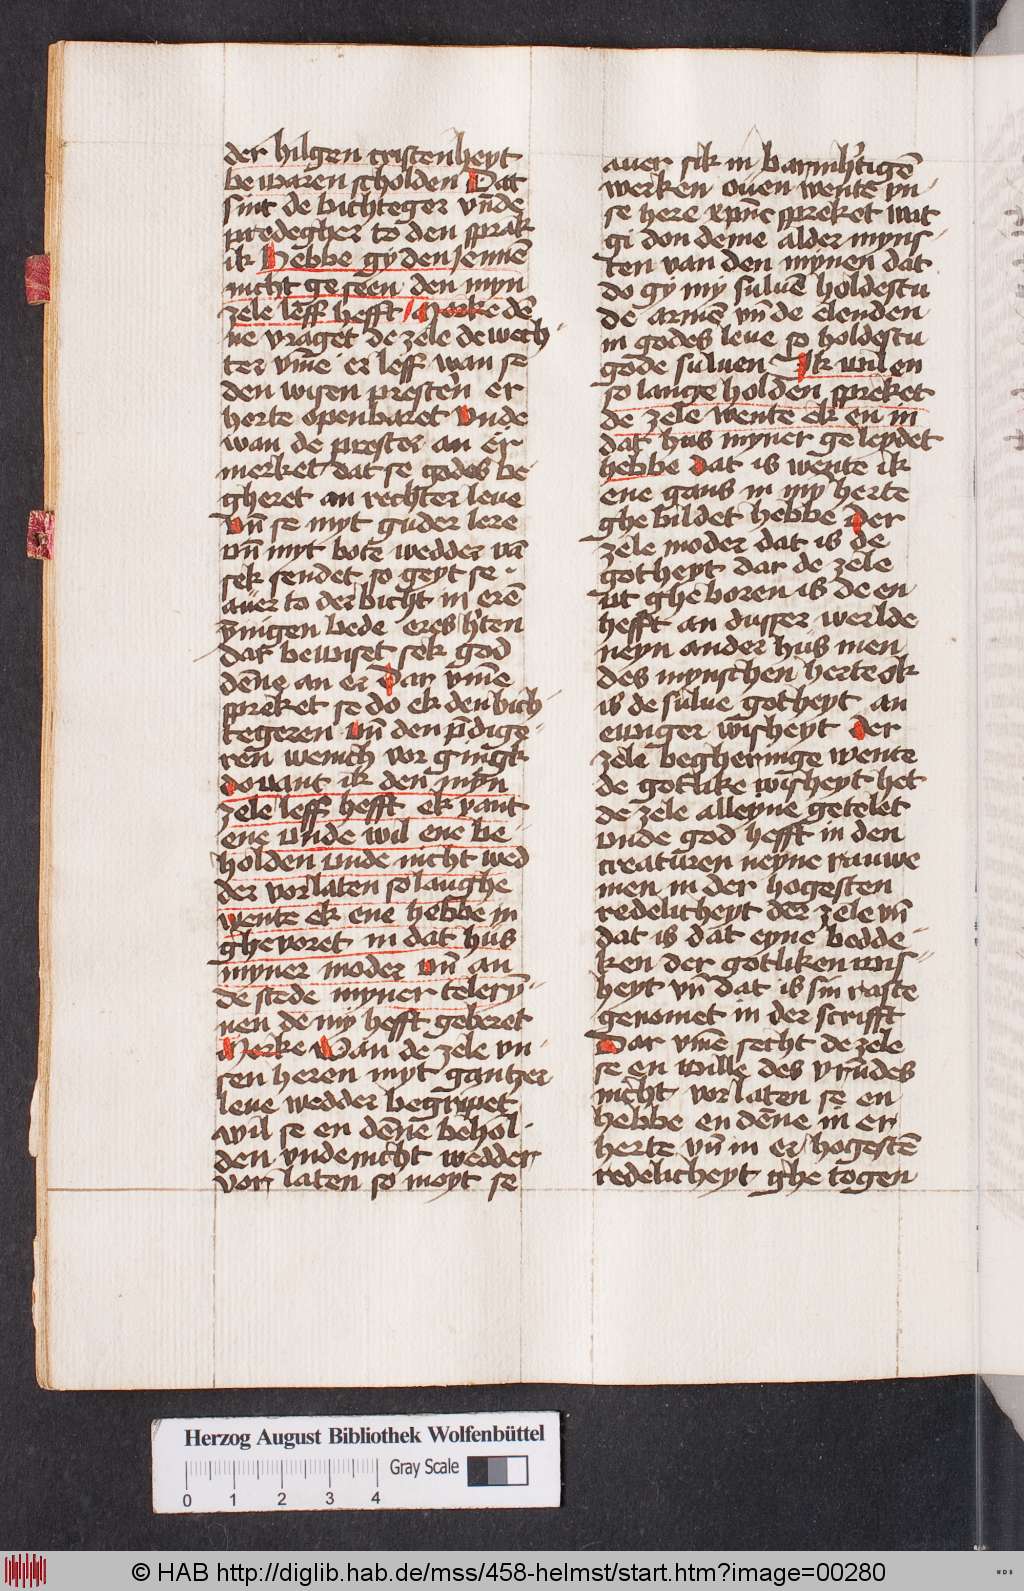 der hilgen cristenheyt
bewaren scholden Dat
sint de bichteger vn̄de
predegher to den sprak
ik Hebbe gy den jennē
nicht geseen den myn
zele leff hefft / Merke dē
ne vraget de zele de wech
ter vm̄e er leff wan se
den wisen presten er
horte openbaret Vnde
wan de prester an er
merket dat se godes be
gheret an rechter leue
Vn̄ se myt guder lere
vn̄ myt bote wedder vā
sek sendet so geyt se
auer to der bicht in erē
ynigen bede eres hten
dar bewiset sek god
dēne an er Dar vm̄e
spreket se do ek den bich
tegeren vn̄ den p̄dige
ren wenich vor gingk
do vant ik den myn
zele leff hefft ek vant
ene vnde wil ene be
holden vnde nicht wed
der vorlaten so langhe
wente ek ene hebbe in
ghevoret in dat hus
myner moder vn̄ an
de stede myner telery
nen de my hefft geberet
Merke Wan de zele vn
sen heren myt gantzer
leue wedder begripet
wil se en dēne behol
den vnde nicht wedder
vor laten so moyt se
auer sik in barmh'tigē
werken ouen wente vn
se here xp̄us spreket wat
gi don deme alder myns
ten van den mynen dat
do gy my suluē holdestu
de armē vn̄ de elenden
in godes leue so holdestu
gode suluen Ik wil en
so lange holden spreket
de zele wente ek en in
dat hus myner geleydet
hebbe Dat is wente ik
ene gans in my herte
ghebildet hebbe Der
zele moder dat is de
gotheyt dar de zele
vt gheboren is de en
hefft an dusser werlde
neyn ander hus men
des mynschen herte ok
is de sulue gotheyt an
ewiger wisheyt Der
zele begheringe wente
de gotlike wisheyt het
de zele alleyne getelet
vnde god hefft in den
creaturen neyne rauwe
men in der hogesten
redelicheyt der zele vn̄
dat is dat eyne bedde
ken der gotliken wis
heyt vn̄ dat is sin raste
genomet in der scrifft
Dar vm̄e secht de zele
se en wille des vrundes
nicht vorlaten se en
hebbe en dēne in er
herte vn̄ in er hogestē
redelicheyt ghe togen
Herzog August Bibliothek Wolfenbüttel
Gray Scale
0 1 2 3 4
© HAB http://diglib.hab.de/mss/458-helmst/start.htm?image=00280